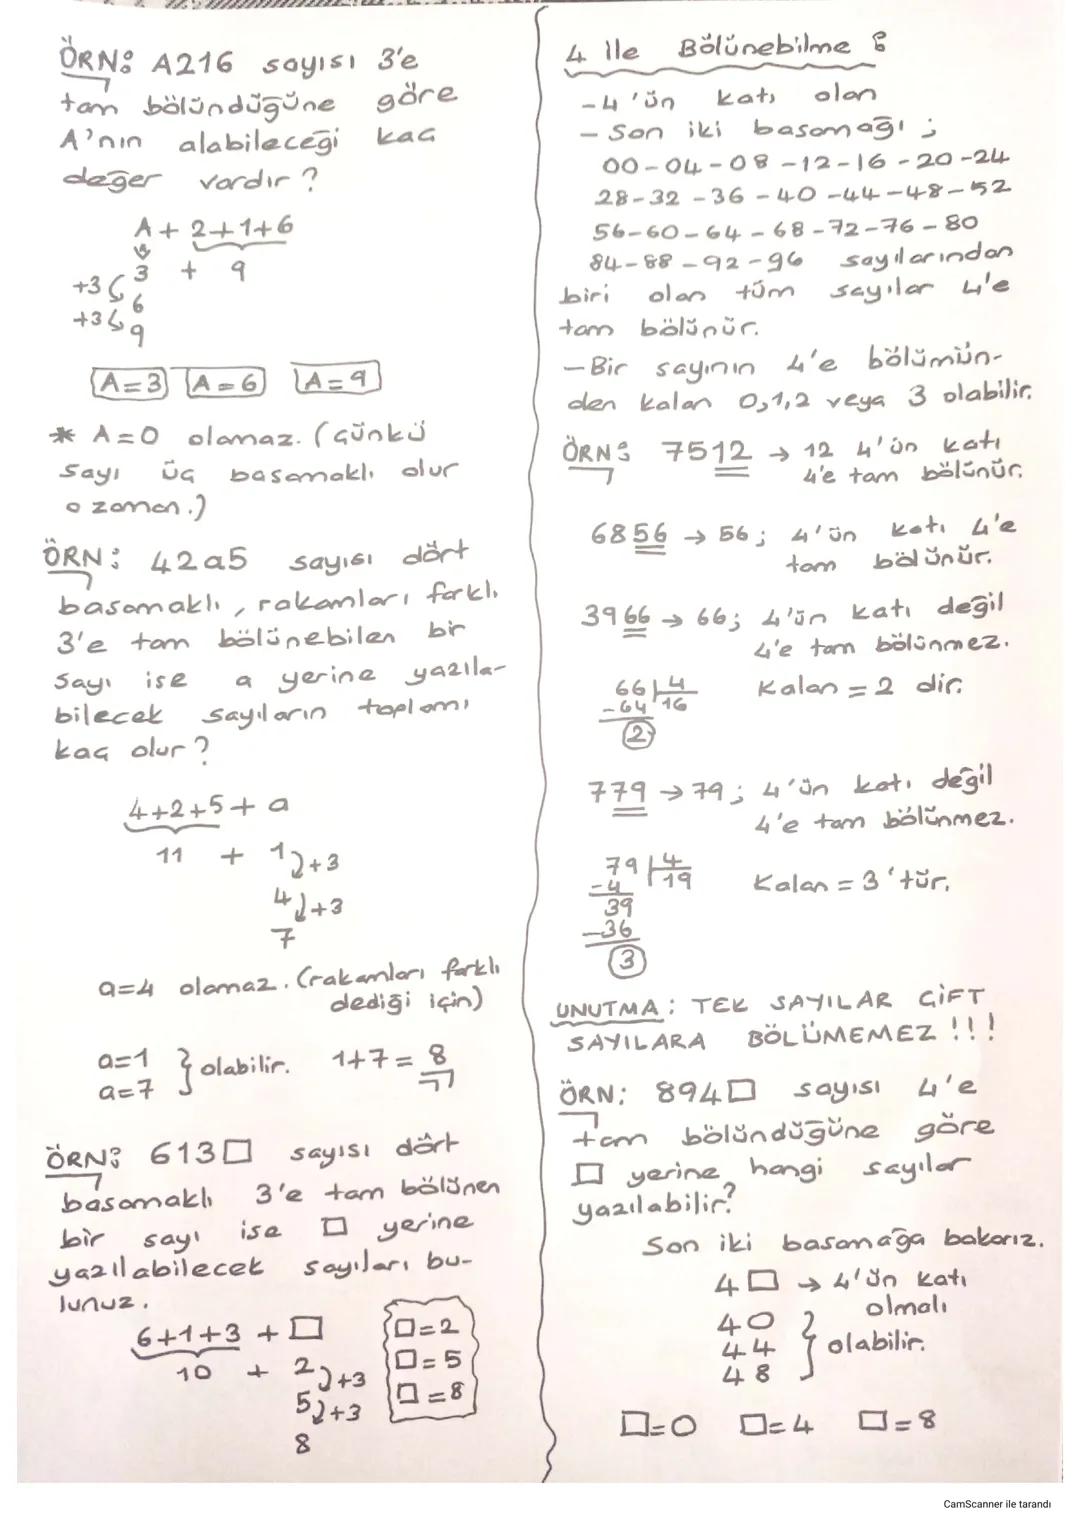 ÖRN: A216 sayısı 3'e
tam bölündüğüne göre
A'nın alabileceği kaç
değer vardır?
A + 2+1+6
3 + 9
+3 6
+3 9
A=3 A=6 A=9
* A=0 olamaz. (Çünkü
sayı üç basamaklı olur
o zaman.)
ÖRN: 42a5 sayısı dört
basamaklı, rakamları farklı
3'e tam bölünebilen bir
sayı ise a yerine yazıla-
bilecek sayıların toplamı
kaç olur?
4+2+5+ a
11 + 1 +3
4 +3
7
a=4 olamaz. (rakamları farklı
dediği için)
a=1
a=7 } olabilir. 1+7 = 8
ÖRN: 613□ sayısı dört
basamaklı 3'e tam bölünen
bir sayı ise □ yerine
yazılabilecek sayıları bu-
lunuz.
6+1+3 + □
10 + 2 +3
5 +3
8
□=2
□=5
□=8
4 ile Bölünebilme :
-4'ün katı olan
- Son iki basamağı ;
00-04-08-12-16-20-24
28-32-36-40-44-48-52
56-60-64-68-72-76-80
84-88-92-96 sayılarından
biri olan tüm sayılar 4'e
tam bölünür.
-Bir sayının 4'e bölümün-
den kalan 0,1,2 veya 3 olabilir.
ÖRN: 7512 → 12 4'ün katı
4'e tam bölünür.
6856 → 56; 4'ün katı 4'e
tam bölünür.
3966 → 66; 4'ün katı değil
4'e tam bölünmez.
66 | 4 Kalan = 2 dir.
-64 16
2
779 → 79; 4'ün katı değil
4'e tam bölünmez.
79 | 4
-4 19 Kalan = 3'tür.
39
-36
3
UNUTMA: TEK SAYILAR ÇİFT
SAYILARA BÖLÜMEMEZ !!!
ÖRN: 894□ sayısı 4'e
tam bölündüğüne göre
□ yerine hangi sayılar
yazılabilir?
Son iki basamağa bakarız.
4□ → 4'ün katı
olmalı
40
44 } olabilir.
48
□=0 □=4 □=8
CamScanner ile tarandı